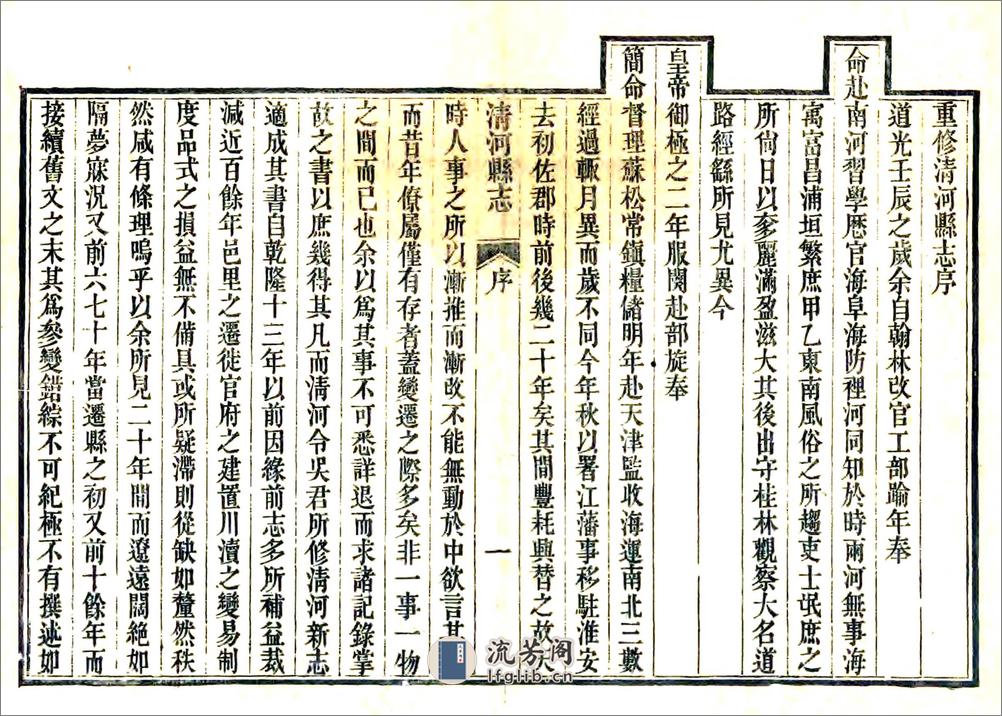 重修清河縣志序
道光壬辰之歲余自翰林改官工部踰年奉
命赴南河習學歷官海阜海防裡河同知於時兩河無事海
寓富昌浦垣繁庶甲乙東南風俗之所趨吏士氓庶之
所尙日以奓麗滿盈滋大其後出守桂林觀察大名道
路經繇所見尤異今
皇帝御極之二年服闋赴部旋奉
簡命督理蘇松常鎭糧儲明年赴天津監收海運南北三數
經過輙月異而歲不同今年秋以署江藩事移駐淮安
去初佐郡時前後幾二十年矣其間豐耗興替之故天
清河縣志 序 一
時人事之所以漸推而漸改不能無動於中欲言其
而昔年僚屬僅有存者蓋變遷之際多矣非一事一物
之間而已也余以爲其事不可悉詳退而求諸記錄掌
故之書以庶幾得其凡而淸河令吳君所修淸河新志
適成其書自乾隆十三年以前因緣前志多所補益裁
減近百餘年邑里之遷徙官府之建置川瀆之變易制
度品式之損益無不備具或所疑滯則從缺如釐然秩
然咸有條理嗚乎以余所見二十年間而遼遠闊絶如
隔夢寐況又前六七十年當遷縣之初又前十餘年而
接續舊文之末其爲參變錯綜不可紀極不有撰述如
流芳阁
lfglib.cn